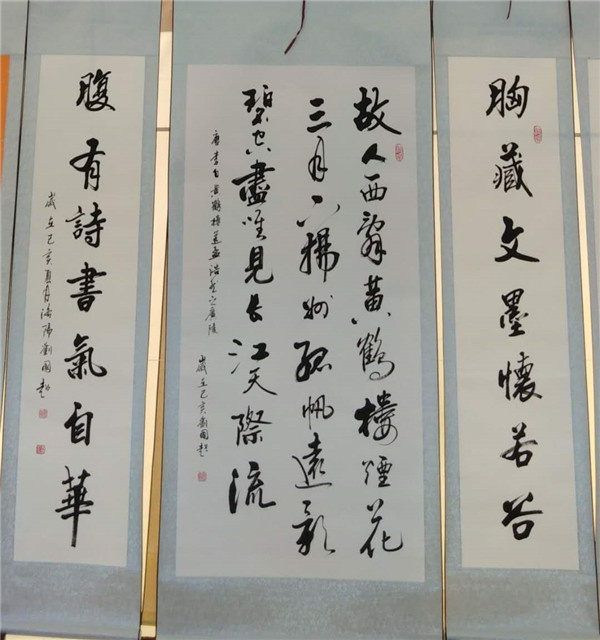 胸藏文墨懷若谷
故人西辭黃鶴樓煙花
三月下揚州孤帆遠影
碧空盡唯見長江天際流
唐李白黃鶴樓送孟浩然之廣陵
歲在己亥劉國
腹有詩書氣自華
歲在己亥夏月 陽劉國